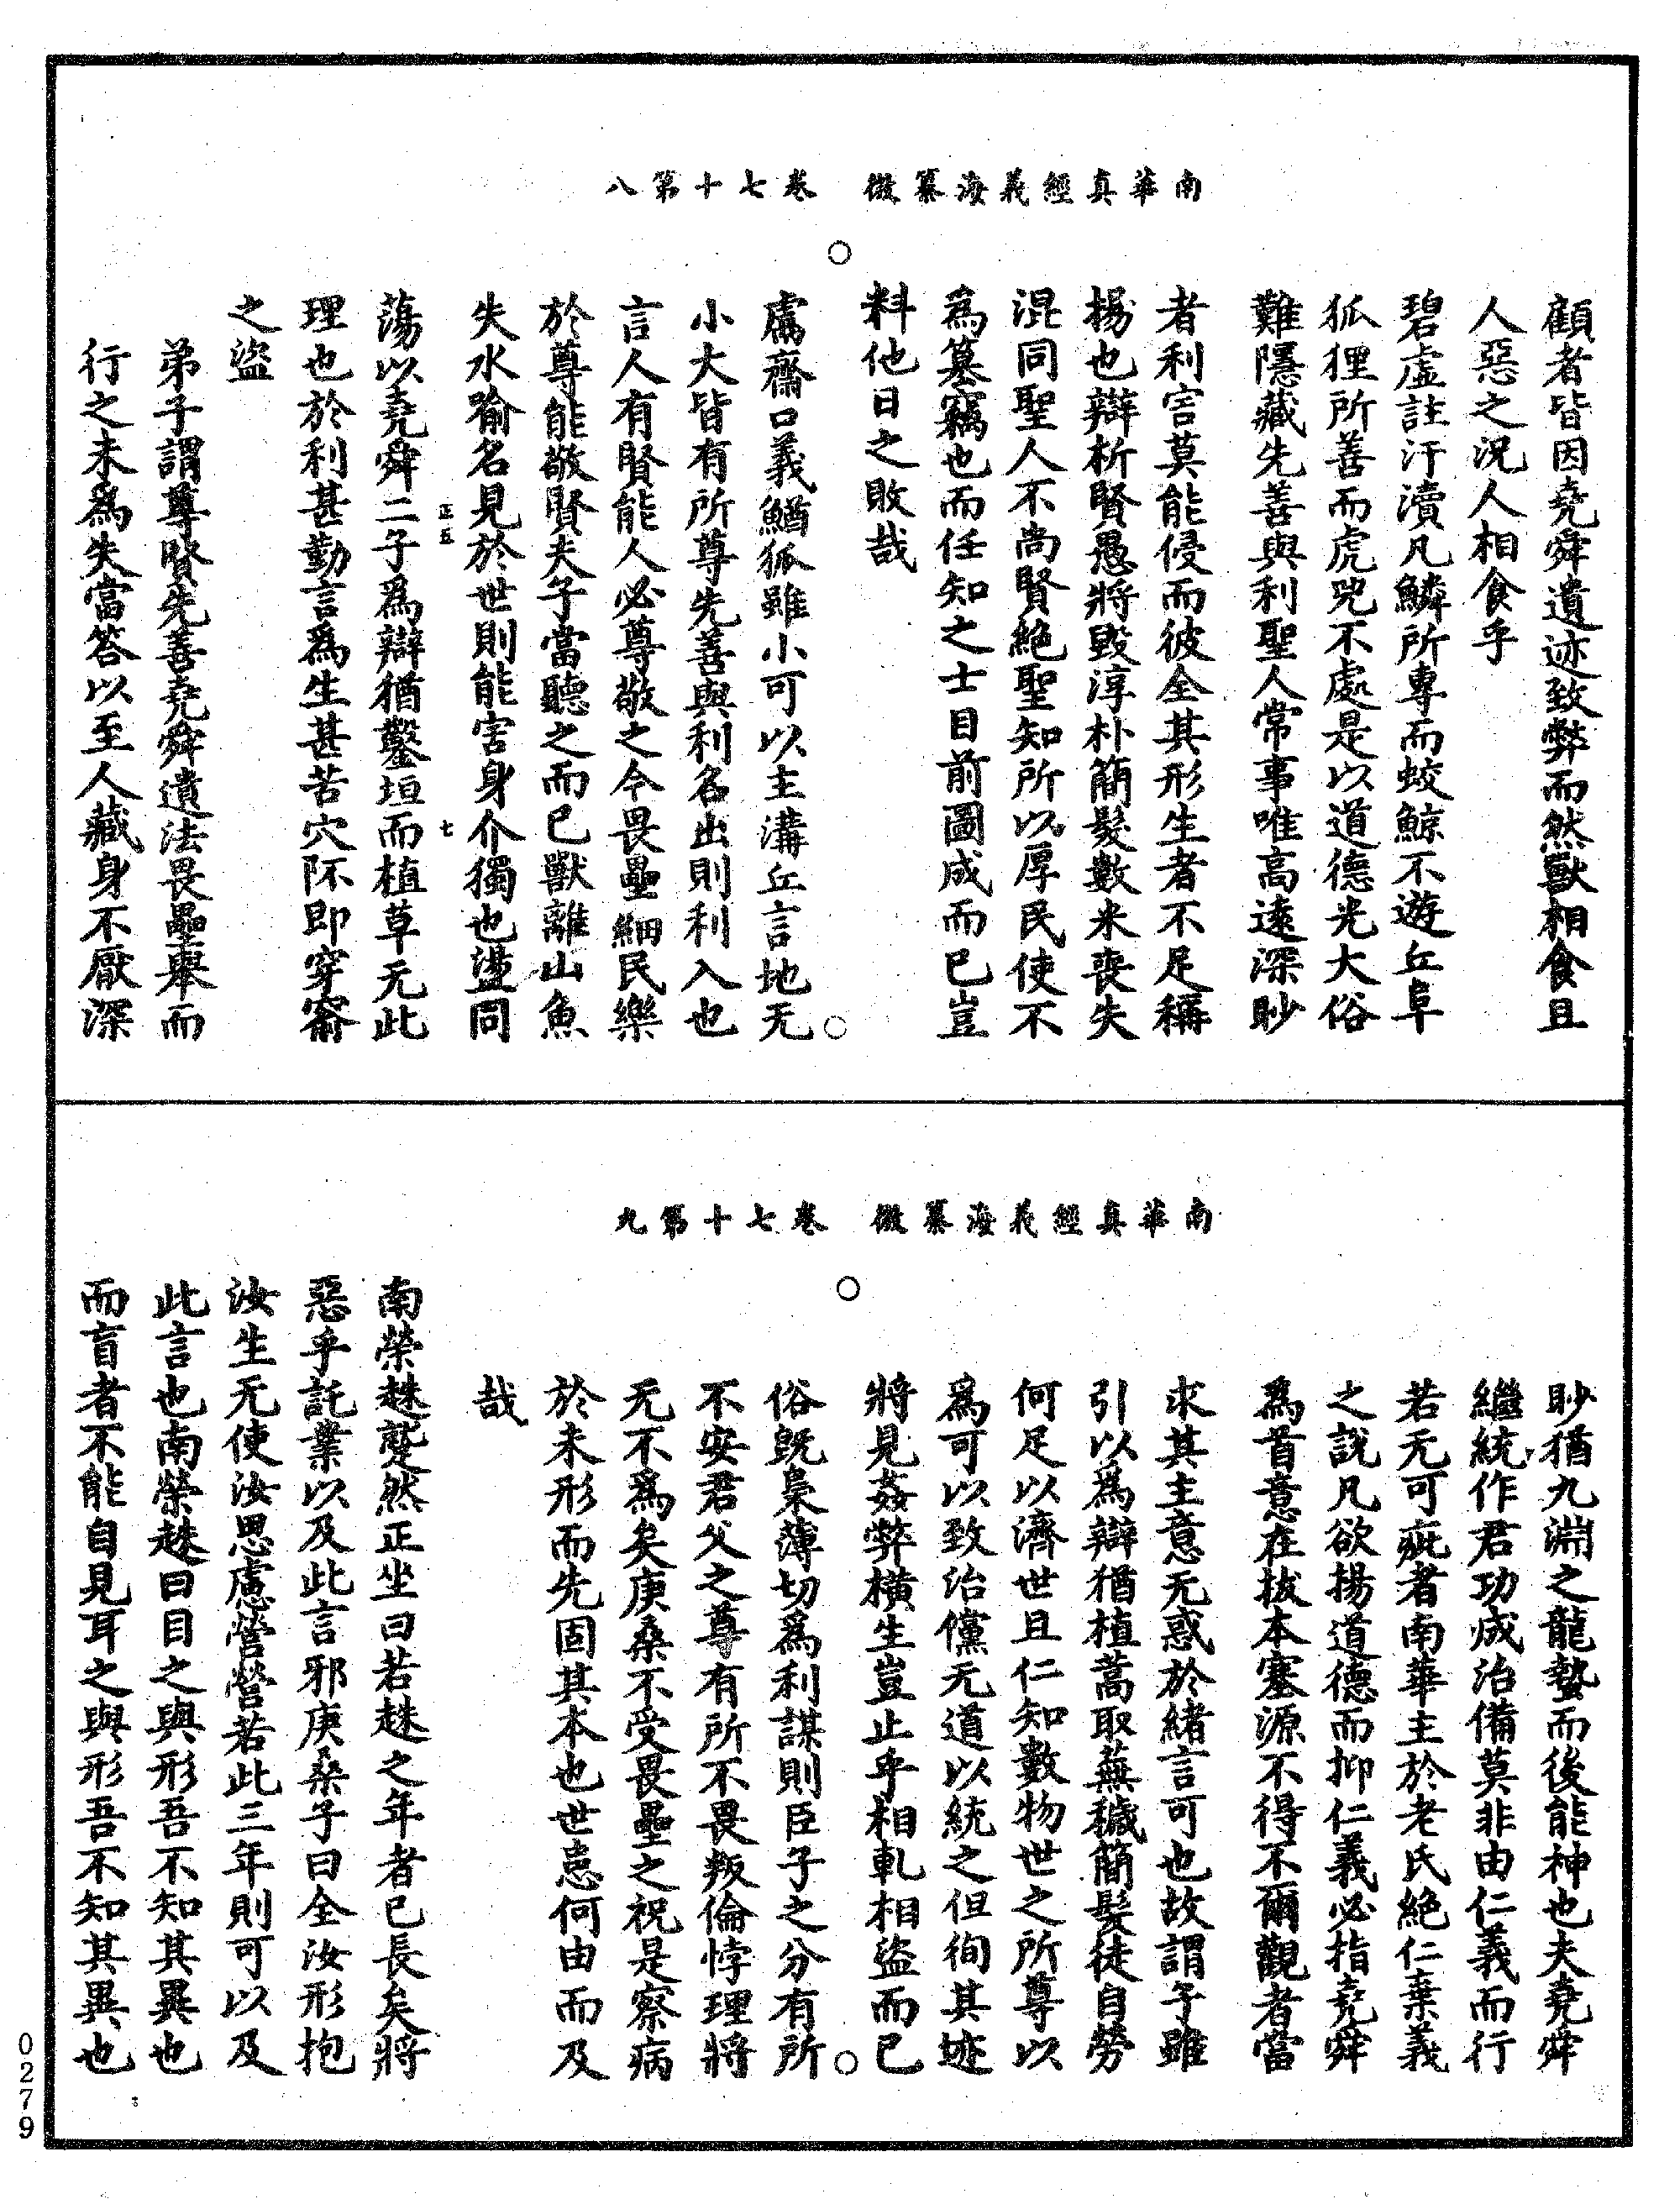 南華真經義海纂微　卷七十第八
顧者皆因堯舜遺迹致弊而然獸相食且
人惡之況人相食乎
碧虛註汙瀆凡鱗所專而蛟鯨不遊丘阜
狐狸所善而虎兕不處是以道德光大俗
難隱藏先善與利聖人常事唯高遠深眇
者利害莫能侵而彼全其形生者不足稱
揚也辯析賢愚將毀淳朴簡髮數米喪失
混同聖人不尚賢絕聖知所以厚民使不
為篡竊也而任知之士目前圖成而已豈
料他日之敗哉
鬳齋口義鰌狐雖小可以主溝丘言地无
小大皆有所尊先善與利名出則利入也
言人有賢能人必尊敬之今畏壘細民樂
於尊能敬賢夫子當聽之而已獸離山魚
失水喻名見於世則能害身介獨也盪同
正五　七
蕩以堯舜二子為辯猶鑿垣而植草无此
理也於利甚勤言為生甚苦穴阫即穿窬
之盜
弟子謂尊賢先善堯舜遺法畏壘舉而
行之未為失當答以至人藏身不厭深
南華真經義海纂微　卷七十第九
眇猶九淵之龍蟄而後能神也夫堯舜
繼統作君功成治備莫非由仁義而行
若无可疵者南華主於老氏絕仁棄義
之說凡欲揚道德而抑仁義必指堯舜
為首意在拔本塞源不得不爾觀者當
求其主意无惑於緒言可也故謂子雖
引以為辯猶植蒿取蕪穢簡髮徒自勞
何足以濟世且仁知數物世之所尊以
為可以致治儻无道以統之但徇其迹
將見姦弊橫生豈止乎相軋相盜而已
俗既梟薄切為利謀則臣子之分有所
不安君父之尊有所不畏叛倫悖理將
无不為矣庚桑不受畏壘之祝是察病
於未形而先固其本也世患何由而及
哉
南榮趎蹵然正坐曰若趎之年者已長矣將
惡乎託業以及此言邪庚桑子曰全汝形抱
汝生无使汝思慮營營若此三年則可以及
此言也南榮趎曰目之與形吾不知其異也
而盲者不能自見耳之與形吾不知其異也
0279